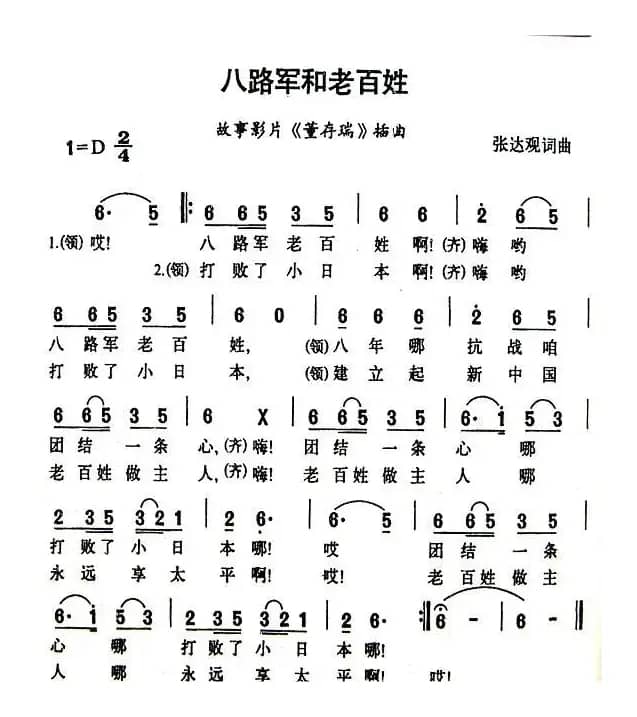 八路军和老百姓
故事影片《董存瑞》插曲
1=D 2/4
张达观词曲
6· 5 ‖: 6 6 5 3 5 | 6 6 | 2 6 5 |
1.(领)哎! 八路军老百 姓啊!(齐)嗨哟
2.(领)打败了小日 本啊!(齐)嗨哟
6 6 5 3 5 | 6 0 | 6 6 6 | 2 6 5 |
八路军老百 姓, (领)八年哪 抗战咱
打败了小日 本, (领)建立起 新中国
6 6 5 3 5 | 6 X | 6 6 5 3 5 | 6· 1 5 3 |
团结一条 心,(齐)嗨! 团结一条 心哪
老百姓做主 人,(齐)嗨! 老百姓做主 人哪
2 3 5 3 2 1 | 2 6· | 6· 5 | 6 6 5 3 5 |
打败了小日 本哪! 哎 团结一条
永远享太 平啊! 哎! 老百姓做主
6· 1 5 3 | 2 3 5 3 2 1 | 2 6· :‖ 6 - | 6 - ‖
心哪 打败了小日 本哪!
人哪 永远享太 平啊! 哎!